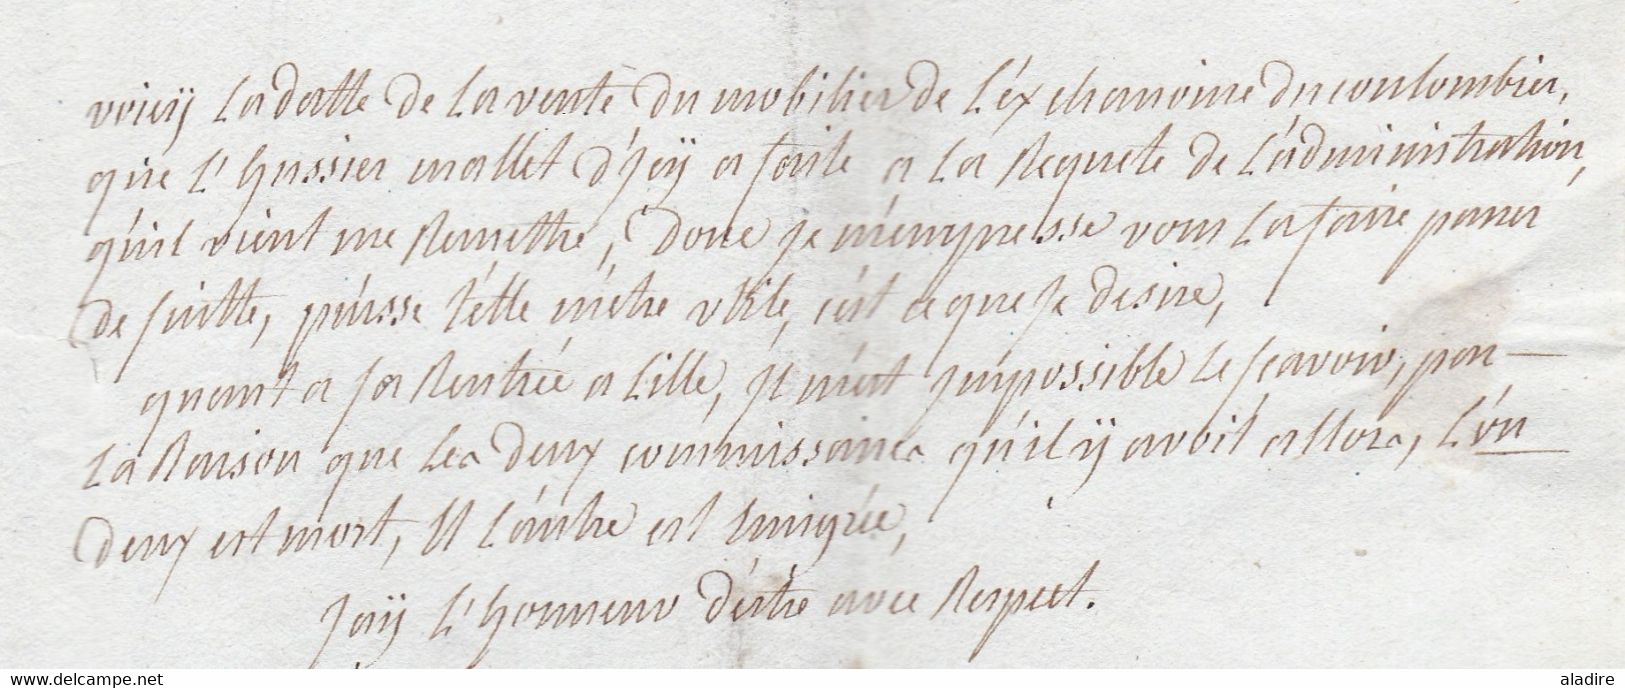 voiçÿ La datte de La vente du mobilier de L'éx chanoine du coulombier,
que L'hussier mallet d'jcÿ a faite a La Requete de L'administration,
qu'il vient me Remettre, donc je m'empresse vous La faire passer
de suitte, puisse t'elle m'etre utile, c'est ce que je desire,
quant a sa Rentrée a Lille, jl m'est jmpossible Le sçavoir, par
La Raison que Les deux commissaires qu'il ÿ avoit allors, L'un
deux est mort, et L'autre est Emigrée,
jaÿ L'honneur d'être avec Respect.
www.delcampe.net
aladire